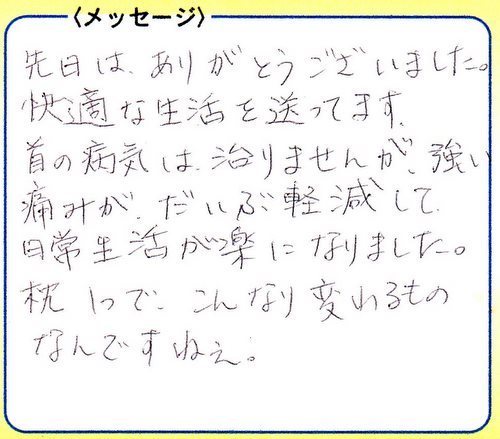 〈メッセージ〉
先日は、ありがとうございました。
快適な生活を送ってます。
首の病気は、治りませんが、強い
痛みが、だいぶ軽減して、
日常生活が楽になりました。
枕1つで、こんなり変わるもの
なんですねぇ。